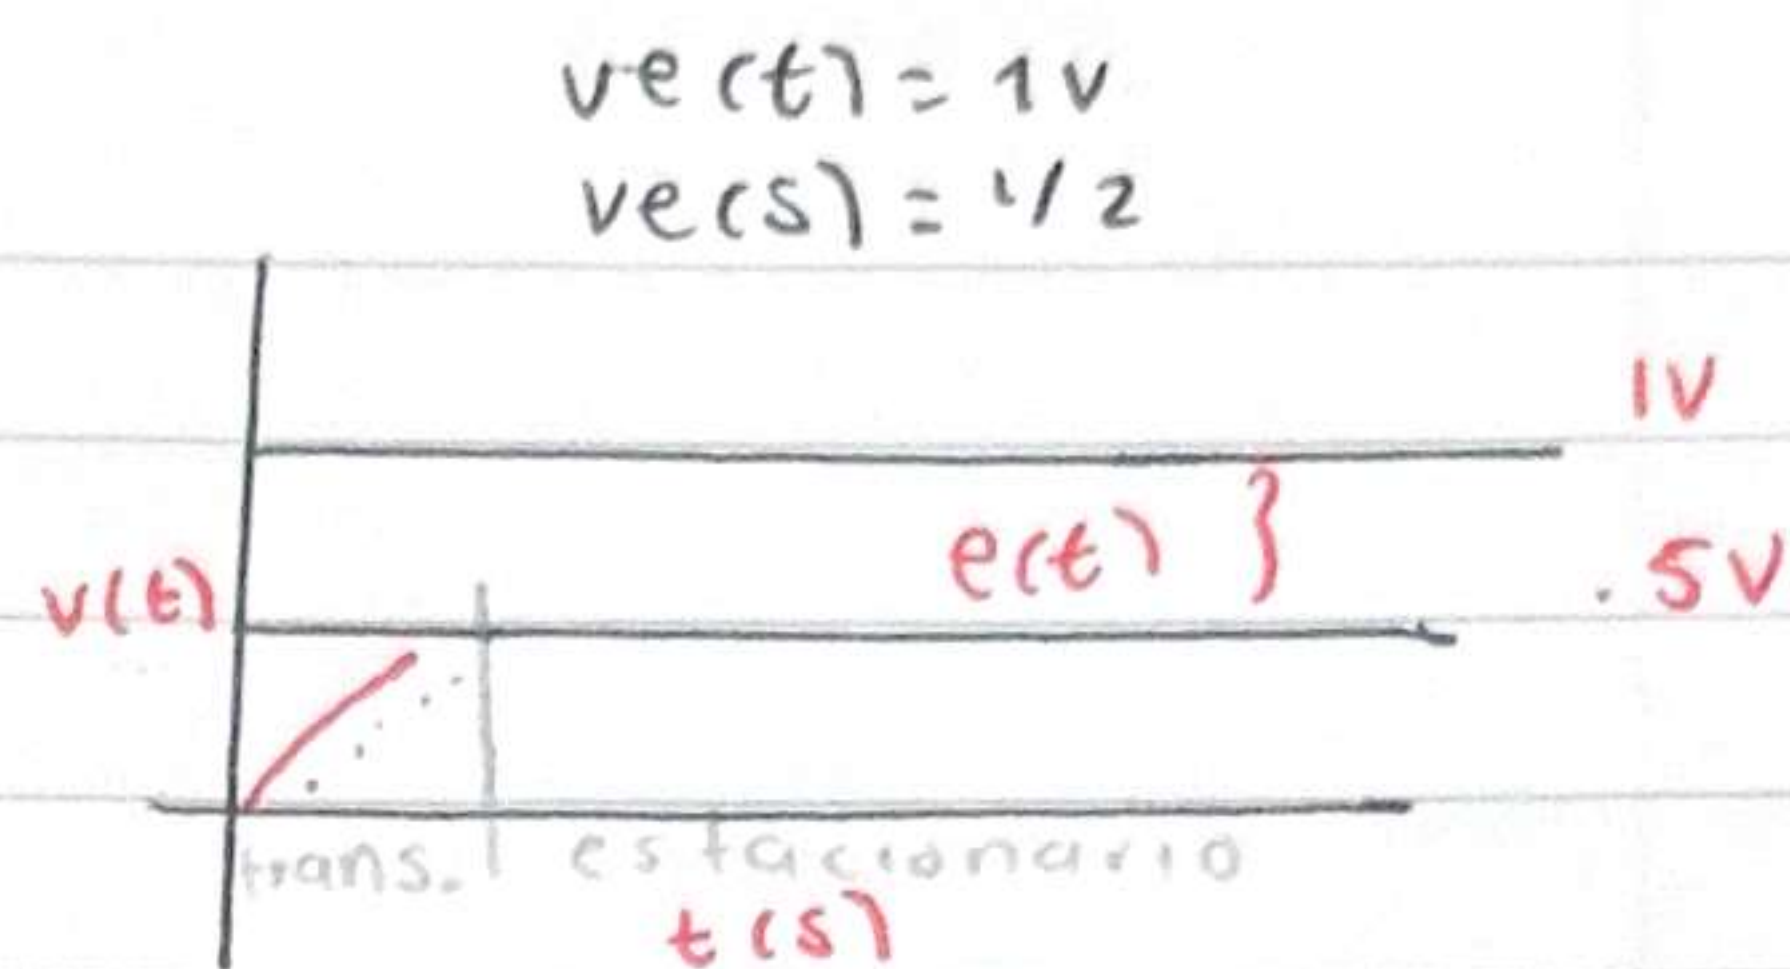 ve(t) = 1v
ve(s) = 1/2
1V
e(t) }
.5V
v(t)
trans. | estacionario
t(s)